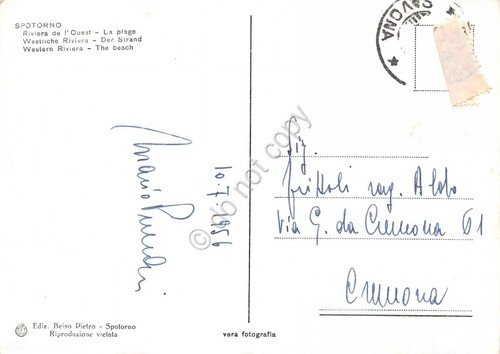 SPOTORNO
Riviera de l'Ouest - La plage
Westliche Riviera - Der Strand
Western Riviera - The beach
SAVONA
10.7.1956
Mario
Sig.
Grittoli rag. Aldo
Via G. da Cremona 61
Cremona
do not copy
Ediz. Beiso Pietro - Spotorno
Riproduzione vietata
vera fotografia